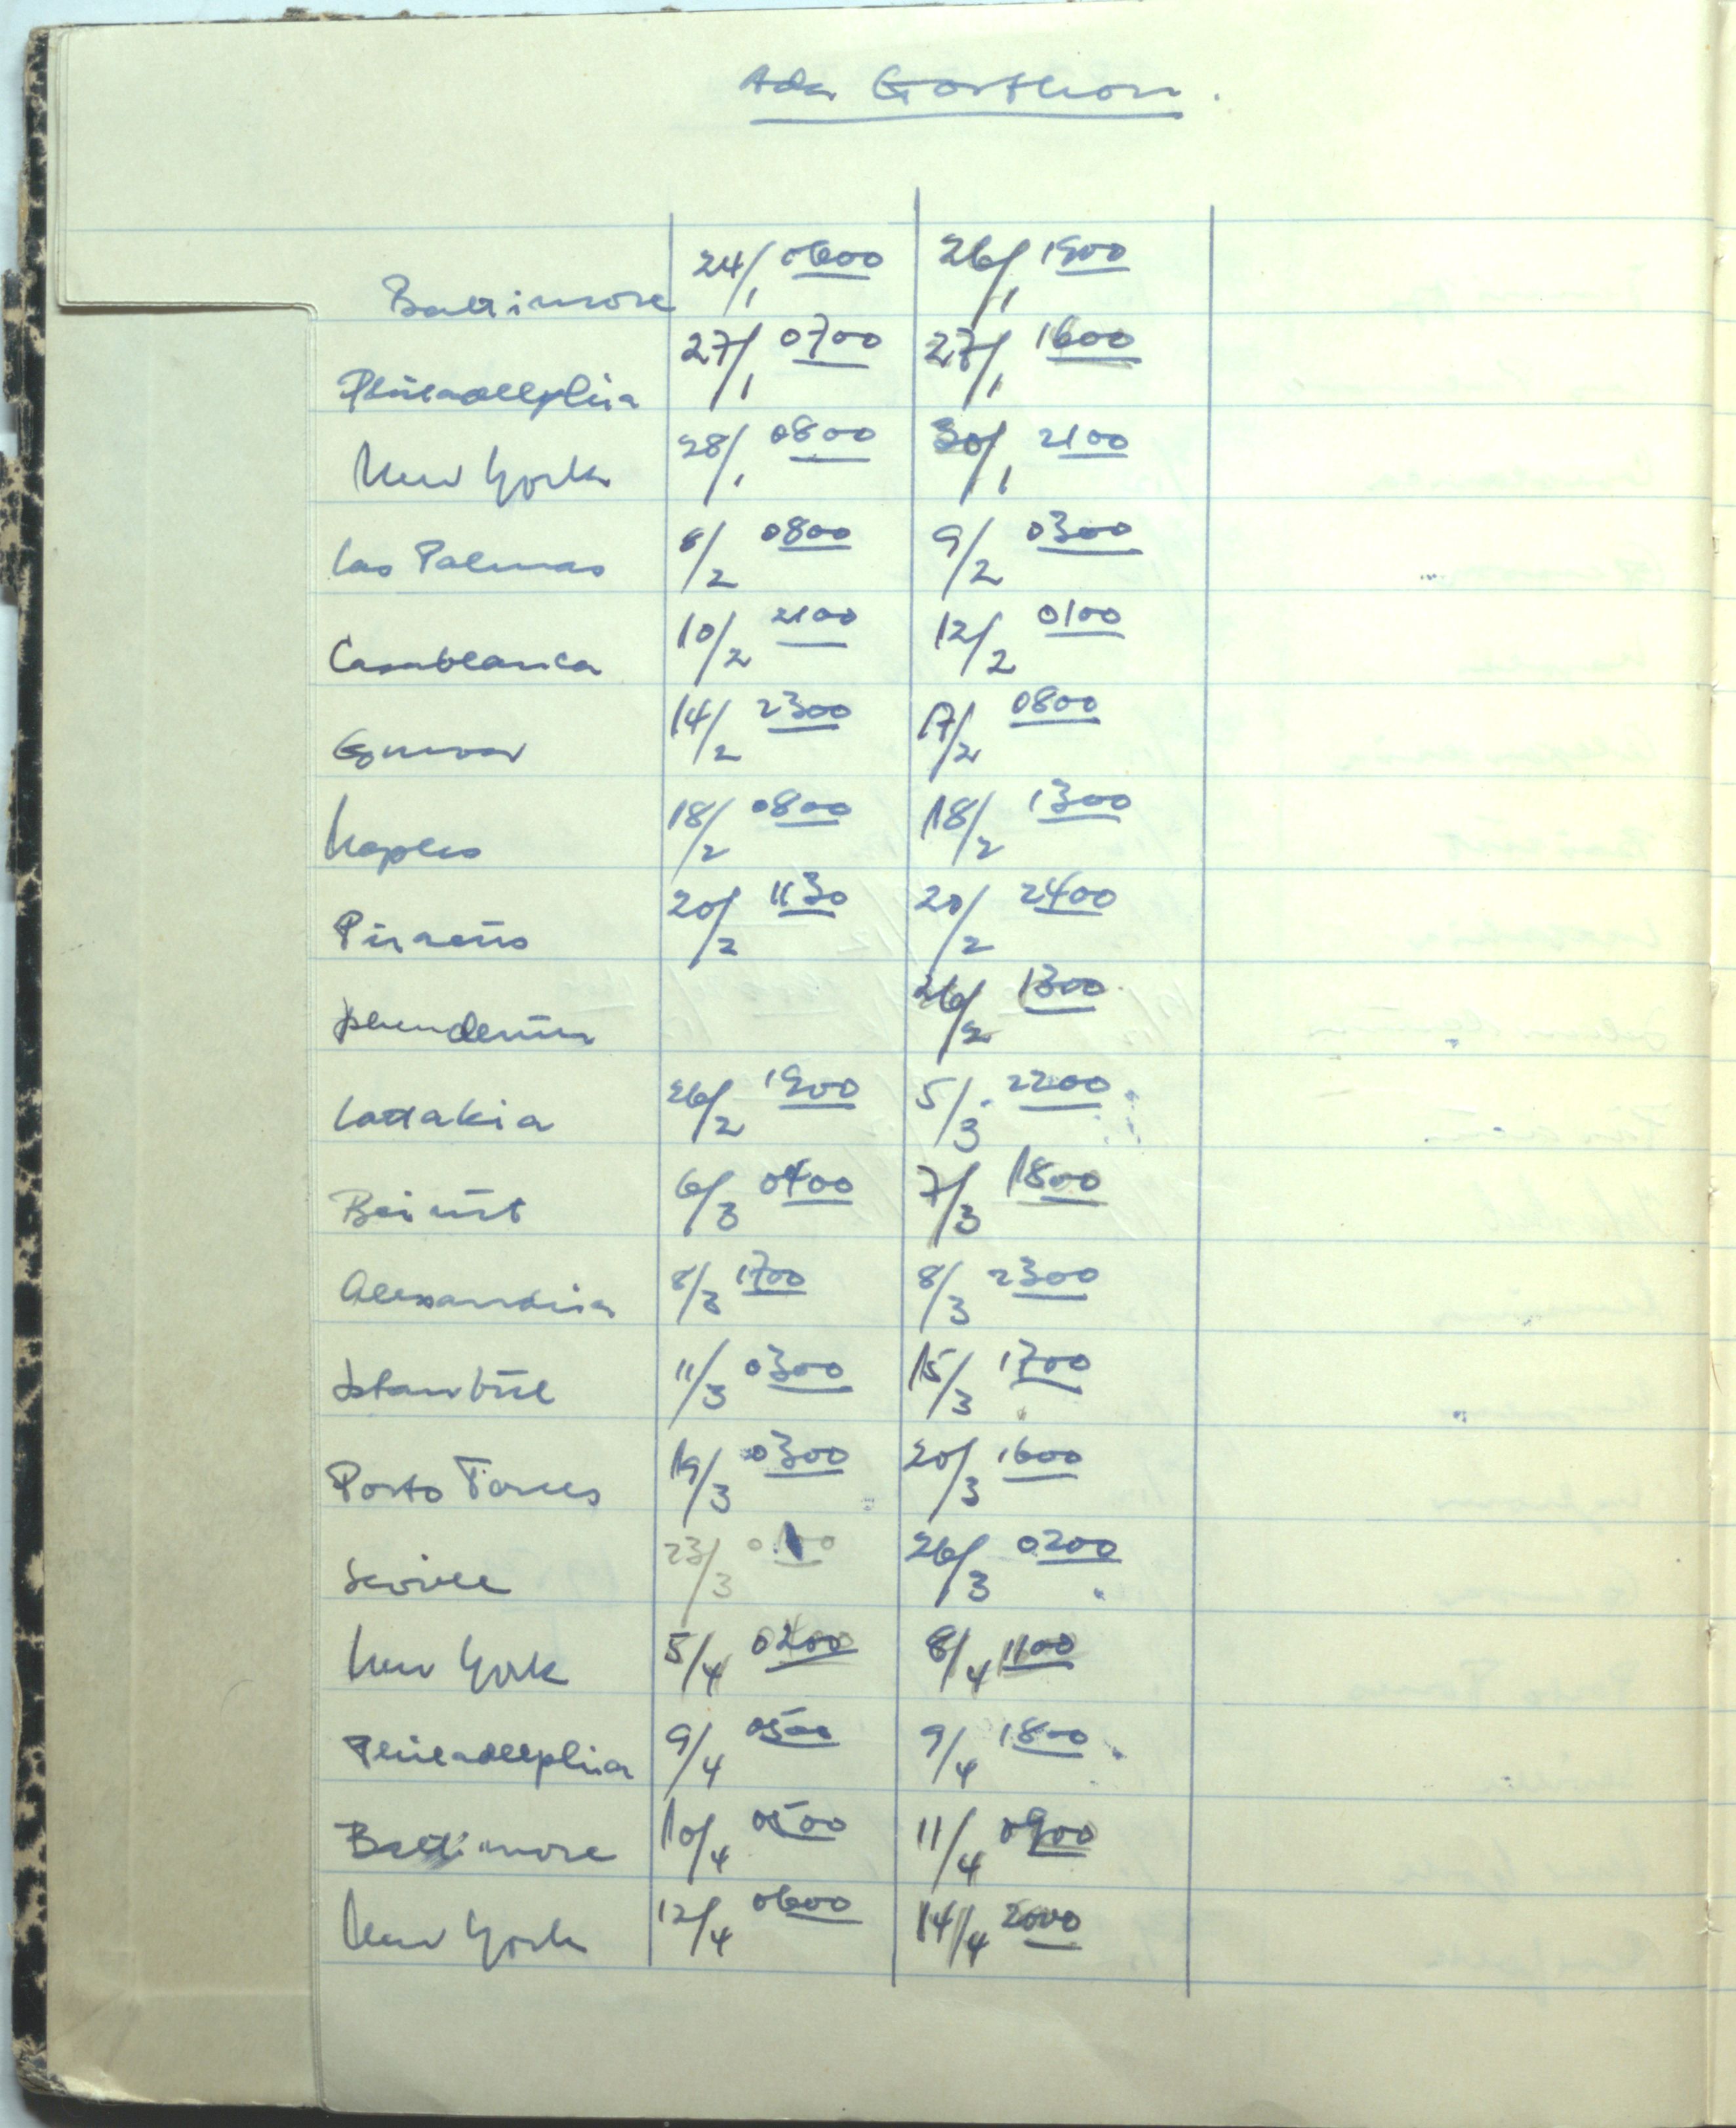 Ada Gorthon.
Baltimore 24/1 0600 26/1 1900
Philadelphia 27/1 0700 27/1 1600
New York 28/1 0800 30/1 2100
Las Palmas 8/2 0800 9/2 0300
Casablanca 10/2 2100 12/2 0100
Genova 14/2 2300 17/2 0800
Naples 18/2 0800 18/2 1300
Piraeus 20/2 1130 20/2 2400
Iskenderun 26/2 1300
Lattakia 26/2 1900 5/3 2200
Beirut 6/3 0400 7/3 1800
Alexandria 8/3 1700 8/3 2300
Istanbul 11/3 0300 15/3 1700
Porto Torres 19/3 0300 20/3 1600
Seville 23/3 26/3 0200
New York 5/4 0200 8/4 1100
Philadelphia 9/4 0500 9/4 1800
Baltimore 10/4 0500 11/4 0900
New York 12/4 0600 14/4 2000